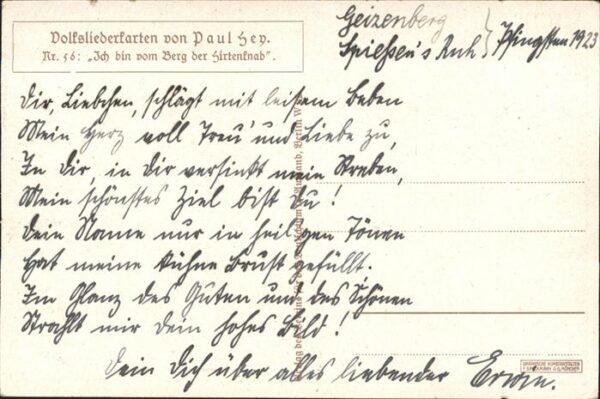 Volksliederkarten von Paul Hey.
Nr. 56: „Ich bin vom Berg der Hirtenknab".
Geizenberg
Spießen's Ruh } Pfingsten 1923
Dir, Liebchen, schlägt mit leisem Beben
Mein Herz voll Treu' und Liebe zu,
In Dir, in Dir versinkt mein Streben,
Mein schönstes Ziel bist Du!
Dein Name nur in heil'gen Tönen
Hat meine kühne Brust gefüllt.
Im Glanz des Guten und des Schönen
Strahlt mir dein hohes Bild!
Dein Dich über alles liebender Erwin.